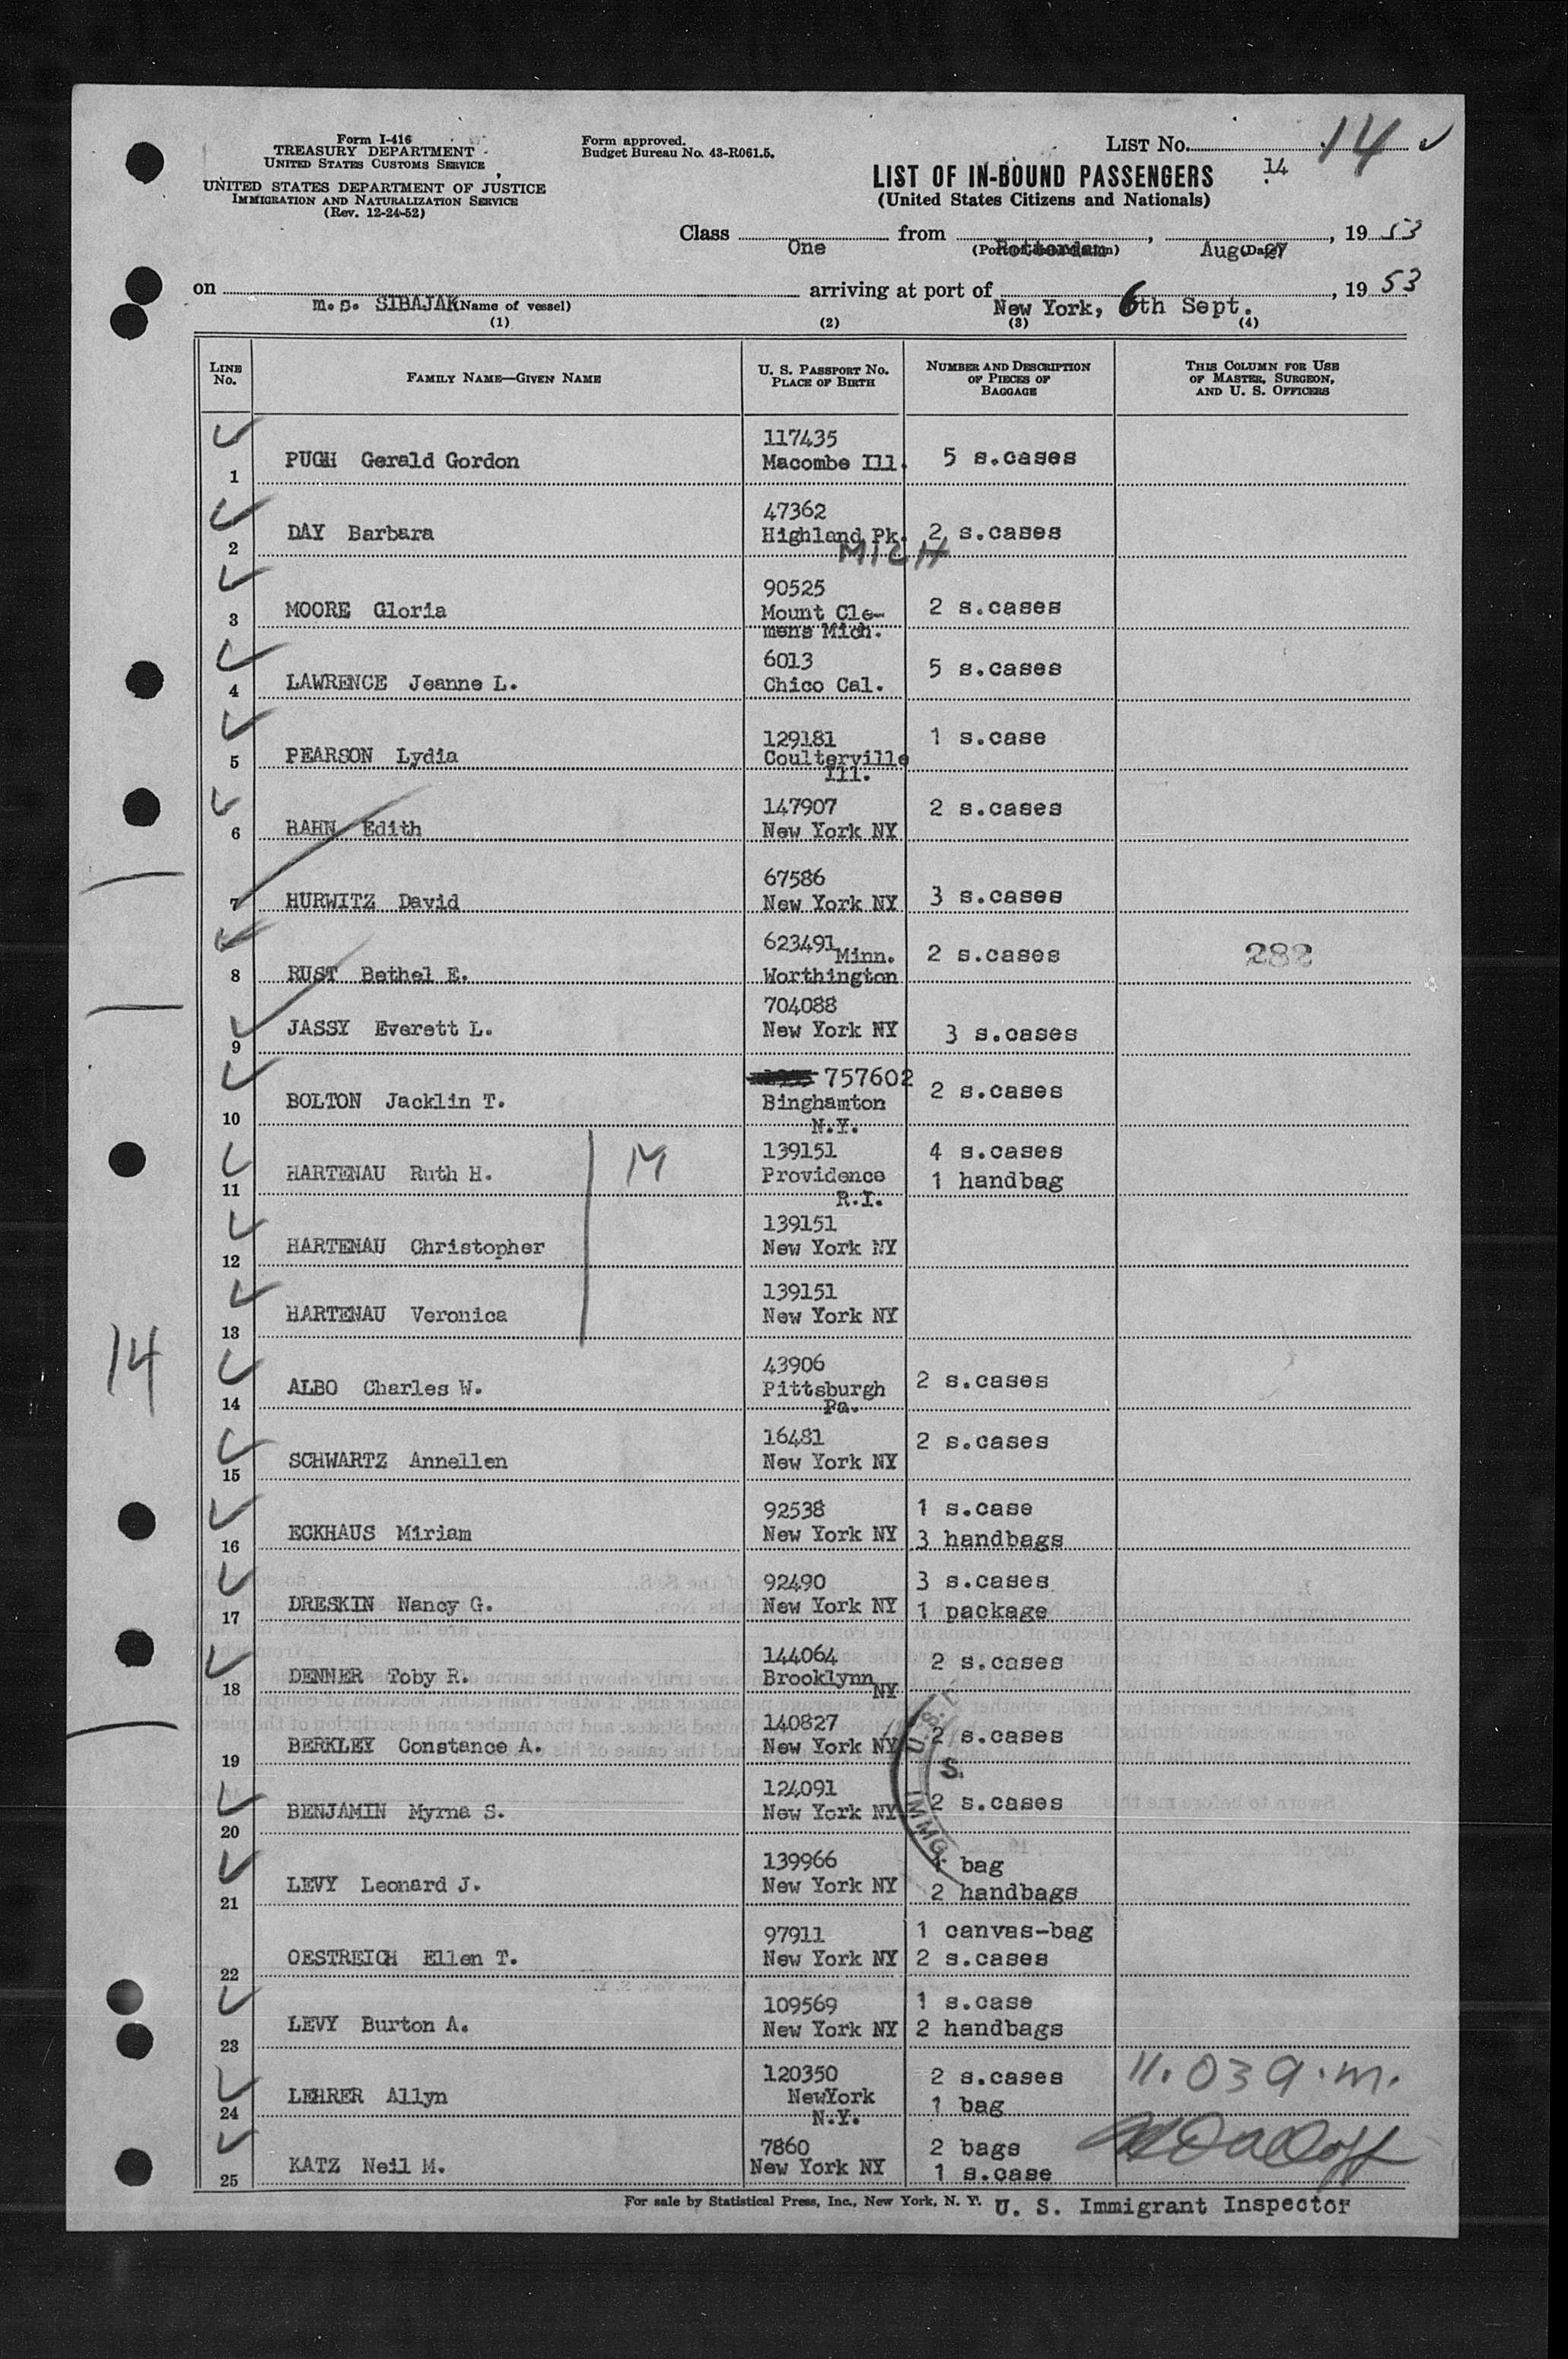 Form I-416
TREASURY DEPARTMENT
UNITED STATES CUSTOMS SERVICE
UNITED STATES DEPARTMENT OF JUSTICE
IMMIGRATION AND NATURALIZATION SERVICE
(Rev. 12-24-52)
Form approved.
Budget Bureau No. 43-R061.5.
LIST No. 14
14
LIST OF IN-BOUND PASSENGERS
(United States Citizens and Nationals)
Class One from Rotterdam, Aug. 27, 1953
on m.s. SIBAJAK (Name of vessel) arriving at port of New York, 6th Sept., 1953
(1) (2) (3) (4)
LINE No. FAMILY NAME—GIVEN NAME U. S. PASSPORT NO. PLACE OF BIRTH NUMBER AND DESCRIPTION OF PIECES OF BAGGAGE THIS COLUMN FOR USE OF MASTER, SURGEON, AND U. S. OFFICERS
1 PUGH Gerald Gordon 117435 Macombe Ill. 5 s.cases
2 DAY Barbara 47362 Highland Pk. MICH 2 s.cases
3 MOORE Gloria 90525 Mount Cle-mens Mich. 2 s.cases
4 LAWRENCE Jeanne L. 6013 Chico Cal. 5 s.cases
5 PEARSON Lydia 129181 Coulterville Ill. 1 s.case
6 RAHN Edith 147907 New York NY 2 s.cases
7 HURWITZ David 67586 New York NY 3 s.cases
8 RUST Bethel E. 623491 Minn. Worthington 2 s.cases 282
9 JASSY Everett L. 704088 New York NY 3 s.cases
10 BOLTON Jacklin T. 757602 Binghamton N.Y. 2 s.cases
11 HARTENAU Ruth H. M 139151 Providence R.I. 4 s.cases 1 handbag
12 HARTENAU Christopher 139151 New York NY
13 HARTENAU Veronica 139151 New York NY
14
14 ALBO Charles W. 43906 Pittsburgh Pa. 2 s.cases
15 SCHWARTZ Annellen 16481 New York NY 2 s.cases
16 ECKHAUS Miriam 92538 New York NY 1 s.case 3 handbags
17 DRESKIN Nancy G. 92490 New York NY 3 s.cases 1 package
18 DENNER Toby R. 144064 Brooklynn NY 2 s.cases
19 BERKLEY Constance A. 140827 New York NY 2 s.cases
U. S. IMMG.
20 BENJAMIN Myrna S. 124091 New York NY 2 s.cases
21 LEVY Leonard J. 139966 New York NY 1 bag 2 handbags
22 OESTREICH Ellen T. 97911 New York NY 1 canvas-bag 2 s.cases
23 LEVY Burton A. 109569 New York NY 1 s.case 2 handbags
24 LEHRER Allyn 120350 NewYork N.Y. 2 s.cases 1 bag 11.03 a.m.
25 KATZ Neil M. 7860 New York NY 2 bags 1 s.case
For sale by Statistical Press, Inc., New York, N. Y. U. S. Immigrant Inspector